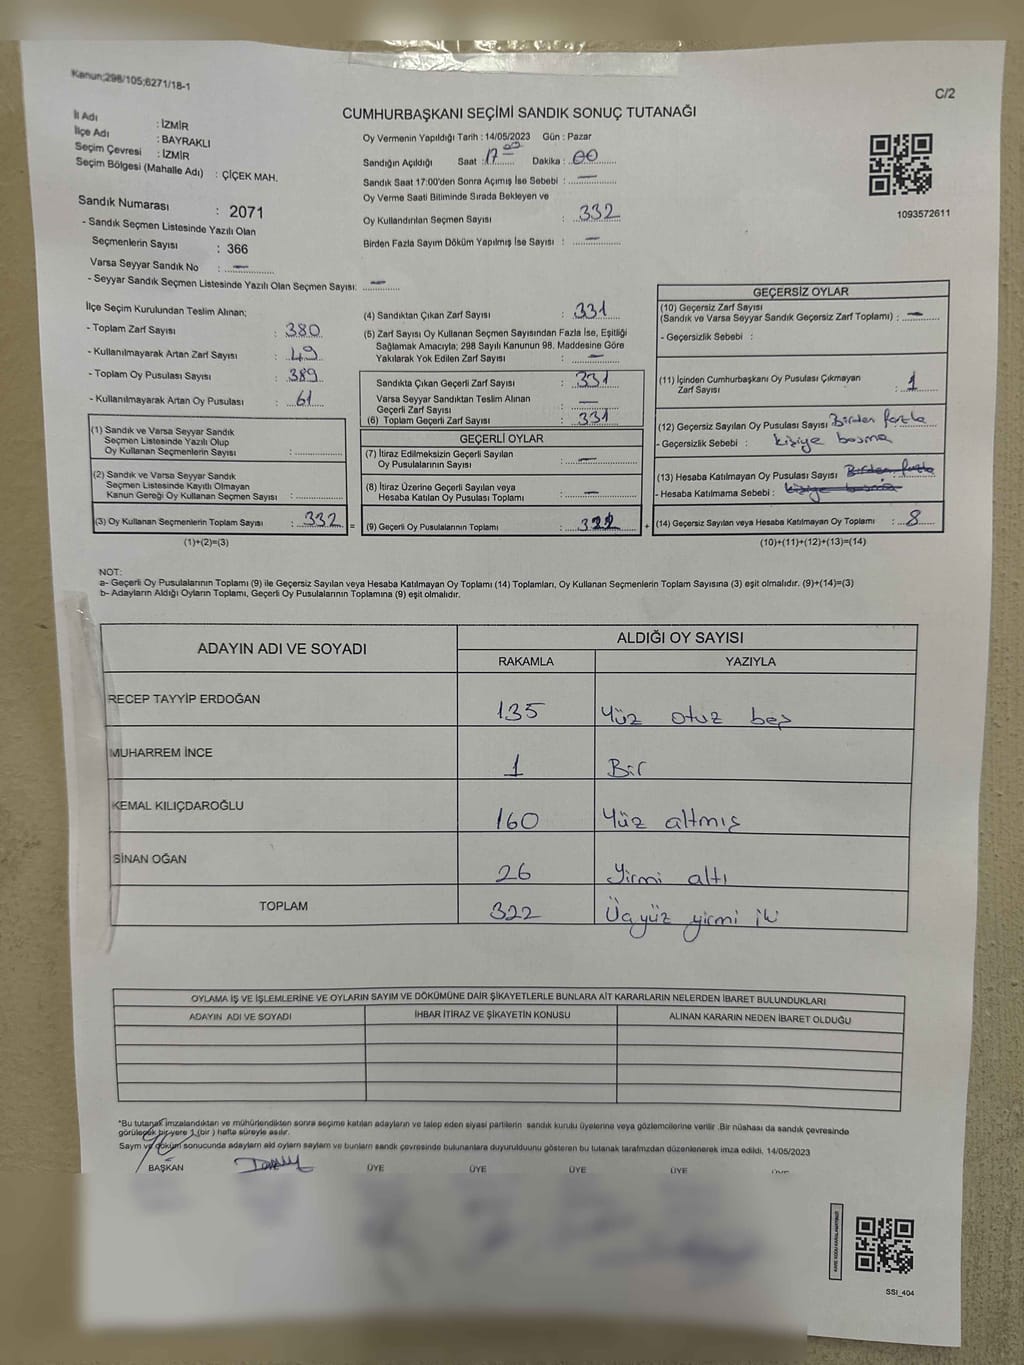 Kanun;298/105;6271/18-1
C/2
CUMHURBAŞKANI SEÇİMİ SANDIK SONUÇ TUTANAĞI
İl Adı : İZMİR
İlçe Adı : BAYRAKLI
Seçim Çevresi : İZMİR
Seçim Bölgesi (Mahalle Adı) : ÇİÇEK MAH.
Sandık Numarası : 2071
- Sandık Seçmen Listesinde Yazılı Olan
Seçmenlerin Sayısı : 366
Varsa Seyyar Sandık No : —
- Seyyar Sandık Seçmen Listesinde Yazılı Olan Seçmen Sayısı: —
Oy Vermenin Yapıldığı Tarih : 14/05/2023 Gün : Pazar
Sandığın Açıldığı Saat : 17 00 Dakika : 00
Sandık Saat 17:00'den Sonra Açımış İse Sebebi : —
Oy Verme Saati Bitiminde Sırada Bekleyen ve
Oy Kullandırılan Seçmen Sayısı : 332
Birden Fazla Sayım Döküm Yapılmış İse Sayısı : —
1093572611
İlçe Seçim Kurulundan Teslim Alınan;
- Toplam Zarf Sayısı : 380
- Kullanılmayarak Artan Zarf Sayısı : 49
- Toplam Oy Pusulası Sayısı : 389
- Kullanılmayarak Artan Oy Pusulası : 61
(1) Sandık ve Varsa Seyyar Sandık
Seçmen Listesinde Yazılı Olup
Oy Kullanan Seçmenlerin Sayısı :
(2) Sandık ve Varsa Seyyar Sandık
Seçmen Listesinde Kayıtlı Olmayan
Kanun Gereği Oy Kullanan Seçmen Sayısı :
(3) Oy Kullanan Seçmenlerin Toplam Sayısı : 332 =
(1)+(2)=(3)
(4) Sandıktan Çıkan Zarf Sayısı : 331
(5) Zarf Sayısı Oy Kullanan Seçmen Sayısından Fazla İse, Eşitliği
Sağlamak Amacıyla; 298 Sayılı Kanunun 98. Maddesine Göre
Yakılarak Yok Edilen Zarf Sayısı : —
Sandıkta Çıkan Geçerli Zarf Sayısı : 331
Varsa Seyyar Sandıktan Teslim Alınan
Geçerli Zarf Sayısı : —
(6) Toplam Geçerli Zarf Sayısı : 331
GEÇERLİ OYLAR
(7) İtiraz Edilmeksizin Geçerli Sayılan
Oy Pusulalarının Sayısı : —
(8) İtiraz Üzerine Geçerli Sayılan veya
Hesaba Katılan Oy Pusulaları Toplamı : —
(9) Geçerli Oy Pusulalarının Toplamı : 322 +
GEÇERSİZ OYLAR
(10) Geçersiz Zarf Sayısı
(Sandık ve Varsa Seyyar Sandık Geçersiz Zarf Toplamı) : —
- Geçersizlik Sebebi :
(11) İçinden Cumhurbaşkanı Oy Pusulası Çıkmayan
Zarf Sayısı : 1
(12) Geçersiz Sayılan Oy Pusulası Sayısı Birden fazla
- Geçersizlik Sebebi : kişiye basma
(13) Hesaba Katılmayan Oy Pusulası Sayısı Birden fazla
- Hesaba Katılmama Sebebi : kişiye basma
(14) Geçersiz Sayılan veya Hesaba Katılmayan Oy Toplamı : 8
(10)+(11)+(12)+(13)=(14)
NOT:
a- Geçerli Oy Pusulalarının Toplamı (9) ile Geçersiz Sayılan veya Hesaba Katılmayan Oy Toplamı (14) Toplamları, Oy Kullanan Seçmenlerin Toplam Sayısına (3) eşit olmalıdır. (9)+(14)=(3)
b- Adayların Aldığı Oyların Toplamı, Geçerli Oy Pusulalarının Toplamına (9) eşit olmalıdır.
ADAYIN ADI VE SOYADI ALDIĞI OY SAYISI
RAKAMLA YAZIYLA
RECEP TAYYİP ERDOĞAN 135 Yüz otuz beş
MUHARREM İNCE 1 Bir
KEMAL KILIÇDAROĞLU 160 Yüz altmış
SİNAN OĞAN 26 Yirmi altı
TOPLAM 322 Üçyüz yirmi iki
OYLAMA İŞ VE İŞLEMLERİNE VE OYLARIN SAYIM VE DÖKÜMÜNE DAİR ŞİKAYETLERLE BUNLARA AİT KARARLARIN NELERDEN İBARET BULUNDUKLARI
ADAYIN ADI VE SOYADI İHBAR İTİRAZ VE ŞİKAYETİN KONUSU ALINAN KARARIN NEDEN İBARET OLDUĞU
*Bu tutanak imzalandıktan ve mühürlendikten sonra seçime katılan adayların ve talep eden siyasi partilerin sandık kurulu üyelerine veya gözlemcilerine verilir .Bir nüshası da sandık çevresinde
görülecek bir yere 1 (bir ) hafta süreyle asılır.
Sayım ve döküm sonucunda adayların ald oyların sayların ve bunların sandk çevresinde bulunanlara duyurulduunu gösteren bu tutanak tarafmzdan düzenlenerek imza edildi. 14/05/2023
BAŞKAN ÜYE ÜYE ÜYE ÜYE
SSI_404